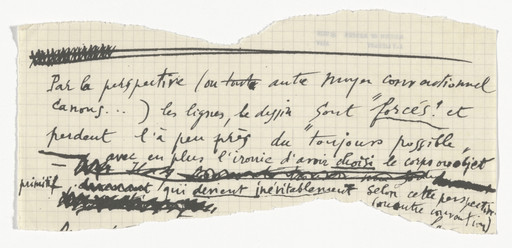 Par la perspective (ou tout autre moyen conventionnel
canons...) les lignes, le dessin sont "forcés" et
perdent l'à peu près du "toujours possible"
— avec en plus l'ironie d'avoir choisi le corps ou objet
primitif qui devient inévitablement selon cette perspective
(ou autre convention)